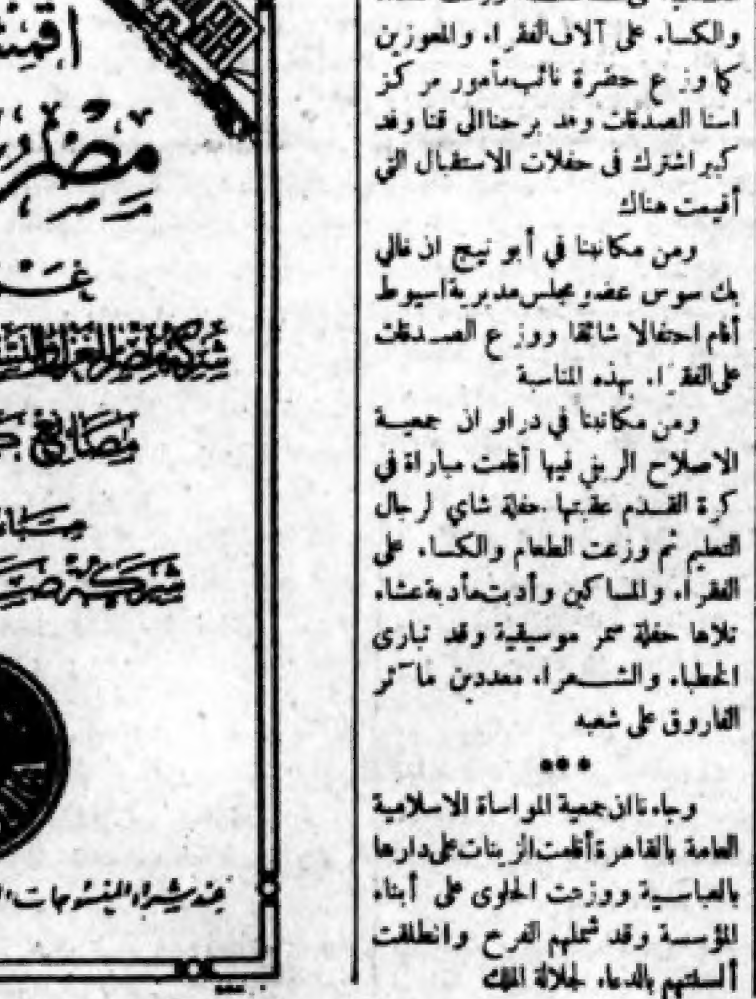 والكساء على آلاف الفقراء والمعوزين
كما وزع حضرة نائب مأمور مركز
اسنا الصدقات وقد برحنا الى قنا وفد
كبير اشترك فى حفلات الاستقبال التي
أقيمت هناك
ومن مكاتبنا في أبو تيج ان غالي
بك سوس عضو مجلس مديرية اسيوط
أقام احتفالا شائقا ووزع الصدقات
على الفقراء بهذه المناسبة
ومن مكاتبنا في دراو ان جمعية
الاصلاح الريفي فيها أقامت مباراة في
كرة القدم عقبتها حفلة شاي لرجال
التعليم ثم وزعت الطعام والكساء على
الفقراء والمساكين وأدبت مأدبة عشاء
تلاها حفلة سمر موسيقية وقد تبارى
الخطباء والشعراء معددين مآثر
الفاروق على شعبه
•••
وجاءنا ان جمعية المواساة الاسلامية
العامة بالقاهرة أقامت الزينات على دارها
بالعباسية ووزعت الحلوى على أبناء
المؤسسة وقد شملهم الفرح وانطلقت
ألسنتهم بالدعاء لجلالة الملك
مصر
شركة مصر للغزل
مصانع
صباغ
شركة
عند شراء المنسوجات